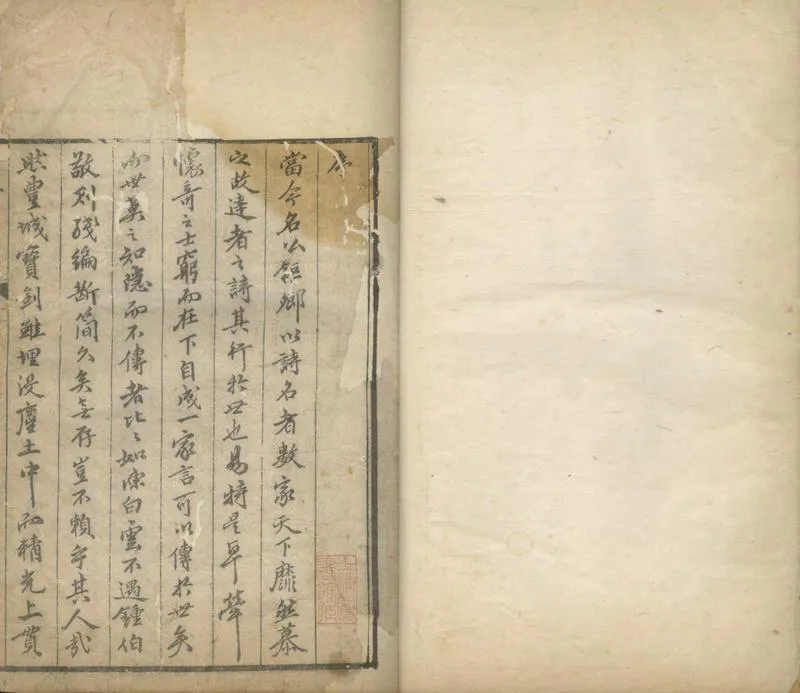 序
當今名公鉅卿以詩名者數家天下靡然慕
之故達者之詩其行於世也易特是卑犖
懷奇之士窮而在下自成一家言可以傳於世矣
而世莫之知隱而不傳者比々如陳白雲不遇鍾伯
敬則殘編斷簡久矣無存豈不賴乎其人哉
然豐城寶劍雖埋没塵土中而精光上貫